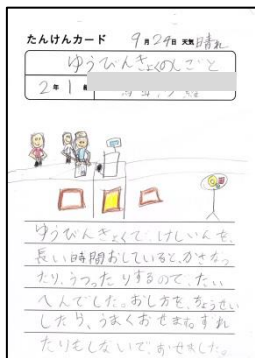 たんけんカード 9月29日 天気 晴れ
ゆうびんきょくのしごと
2年1組
ゆうびんきょくで、けしいんを、
長い時間おしていると、かさなっ
たり、うつったりするので、たい
へんでした。おし方を、ちょうせい
したら、うまくおせます。ずれ
たりもしないで、おせました。